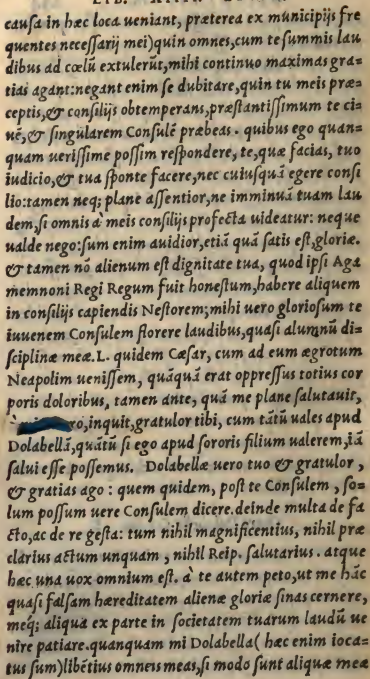 causa in hæc loca ueniant, præterea ex municipijs fre
quentes necessarij mei) quin omnes, cum te summis lau
dibus ad cœlũ extulerũt, mihi continuo maximas gra=
tias agant: negant enim se dubitare, quin tu meis præ=
ceptis, & consilijs obtemperans, præstantissimum te ci=
uẽ, & singularem Consulẽ præbeas. quibus ego quan=
quam uerissime possim respondere, te, quæ facias, tuo
iudicio, & tua sponte facere, nec cuiusquã egere consi
lio: tamen neq; plane assentior, ne imminuã tuam lau
dem, si omnis a' meis consilijs profecta uideatur: neque
ualde nego: sum enim auidior, etiã quã satis est, gloriæ.
& tamen nõ alienum est dignitate tua, quod ipsi Aga
memnoni Regi Regum fuit honestum, habere aliquem
in consilijs capiendis Nestorem; mihi uero gloriosum te
iuuenem Consulem florere laudibus, quasi alumnũ di=
sciplinæ meæ. L. quidem Cæsar, cum ad eum ægrotum
Neapolim uenissem, quãquã erat oppressus totius cor
poris doloribus, tamen ante, quã me plane salutauit,
ro, inquit, gratulor tibi, cum tãtũ uales apud
Dolabellã, quãtũ si ego apud sororis filium ualerem, iã
salui esse possemus. Dolabellæ uero tuo & gratulor,
& gratias ago: quem quidem, post te Consulem, so=
lum possum uere Consulem dicere. deinde multa de fa
cto, ac de re gesta: tum nihil magnificentius, nihil præ
clarius actum unquam, nihil Reip. salutarius. atque
hæc una uox omnium est. a' te autem peto, ut me hãc
quasi falsam hæreditatem alienæ gloriæ sinas cernere,
meq; aliqua ex parte in societatem tuarum laudũ ue
nire patiare. quanquam mi Dolabella (hæc enim ioca=
tus sum) libẽtius omneis meas, si modo sunt aliquæ meæ